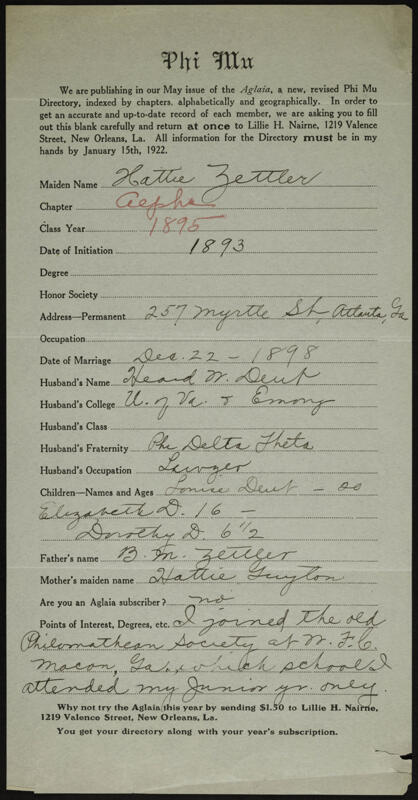 Phi Mu
We are publishing in our May issue of the Aglaia, a new, revised Phi Mu
Directory, indexed by chapters, alphabetically and geographically. In order to
get an accurate and up-to-date record of each member, we are asking you to fill
out this blank carefully and return at once to Lillie H. Nairne, 1219 Valence
Street, New Orleans, La. All information for the Directory must be in my
hands by January 15th, 1922.
Maiden Name Hattie Zettler
Chapter Alpha
Class Year 1895
Date of Initiation 1893
Degree
Honor Society
Address—Permanent 257 Myrtle St, Atlanta, Ga
Occupation
Date of Marriage Dec. 22 - 1898
Husband's Name Heard W. Dent
Husband's College U. of Va. & Emory
Husband's Class
Husband's Fraternity Phi Delta Theta
Husband's Occupation Lawyer
Children—Names and Ages Louise Dent - 20
Elizabeth D. 16 -
Dorothy D. 6 1/2
Father's name B. M. Zettler
Mother's maiden name Hattie Guyton
Are you an Aglaia subscriber? no
Points of Interest, Degrees, etc. I joined the old
Philomathean Society at W. F. C.
Macon, Ga., which school I
attended my Junior yr. only.
Why not try the Aglaia this year by sending $1.50 to Lillie H. Nairne,
1219 Valence Street, New Orleans, La.
You get your directory along with your year's subscription.